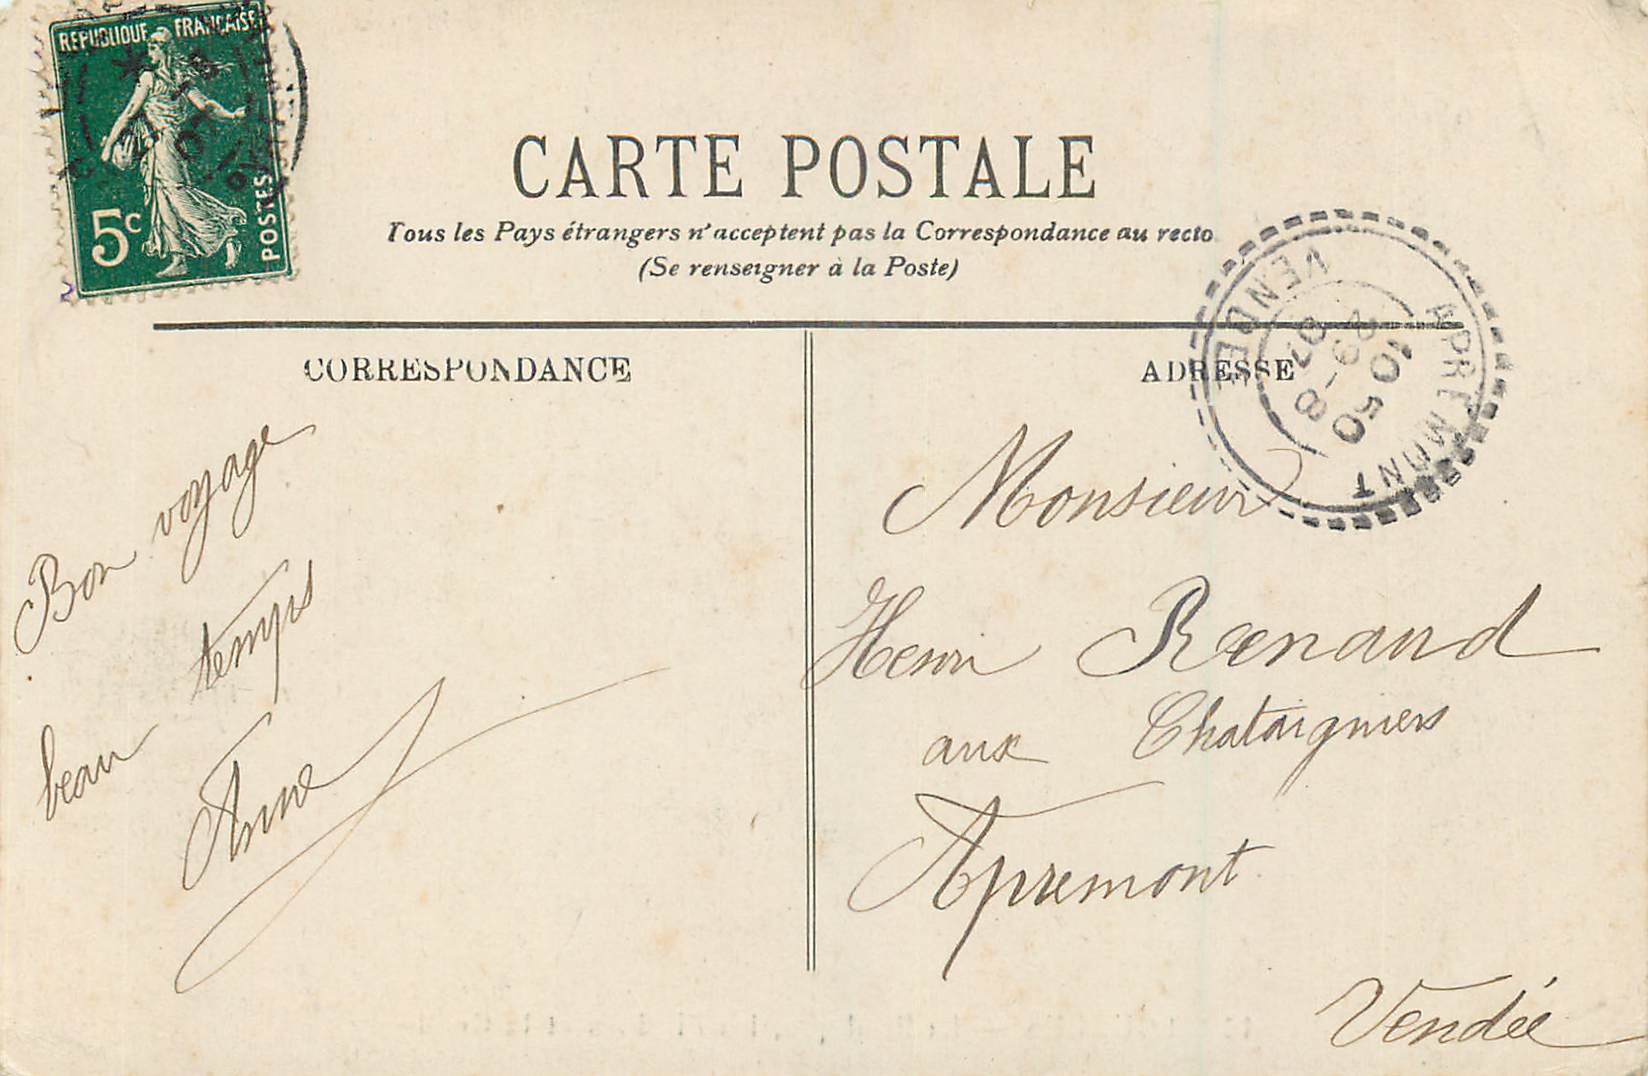 REPUBLIQUE FRANÇAISE
5c
POSTES
CARTE POSTALE
Tous les Pays étrangers n'acceptent pas la Correspondance au recto
(Se renseigner à la Poste)
CORRESPONDANCE
ADRESSE
APREMONT
VENDÉE
10 50
29-8
07
Bon voyage
beau temps
Anne
Monsieur
Henri Renaud
aux Chataigniers
Apremont
Vendée